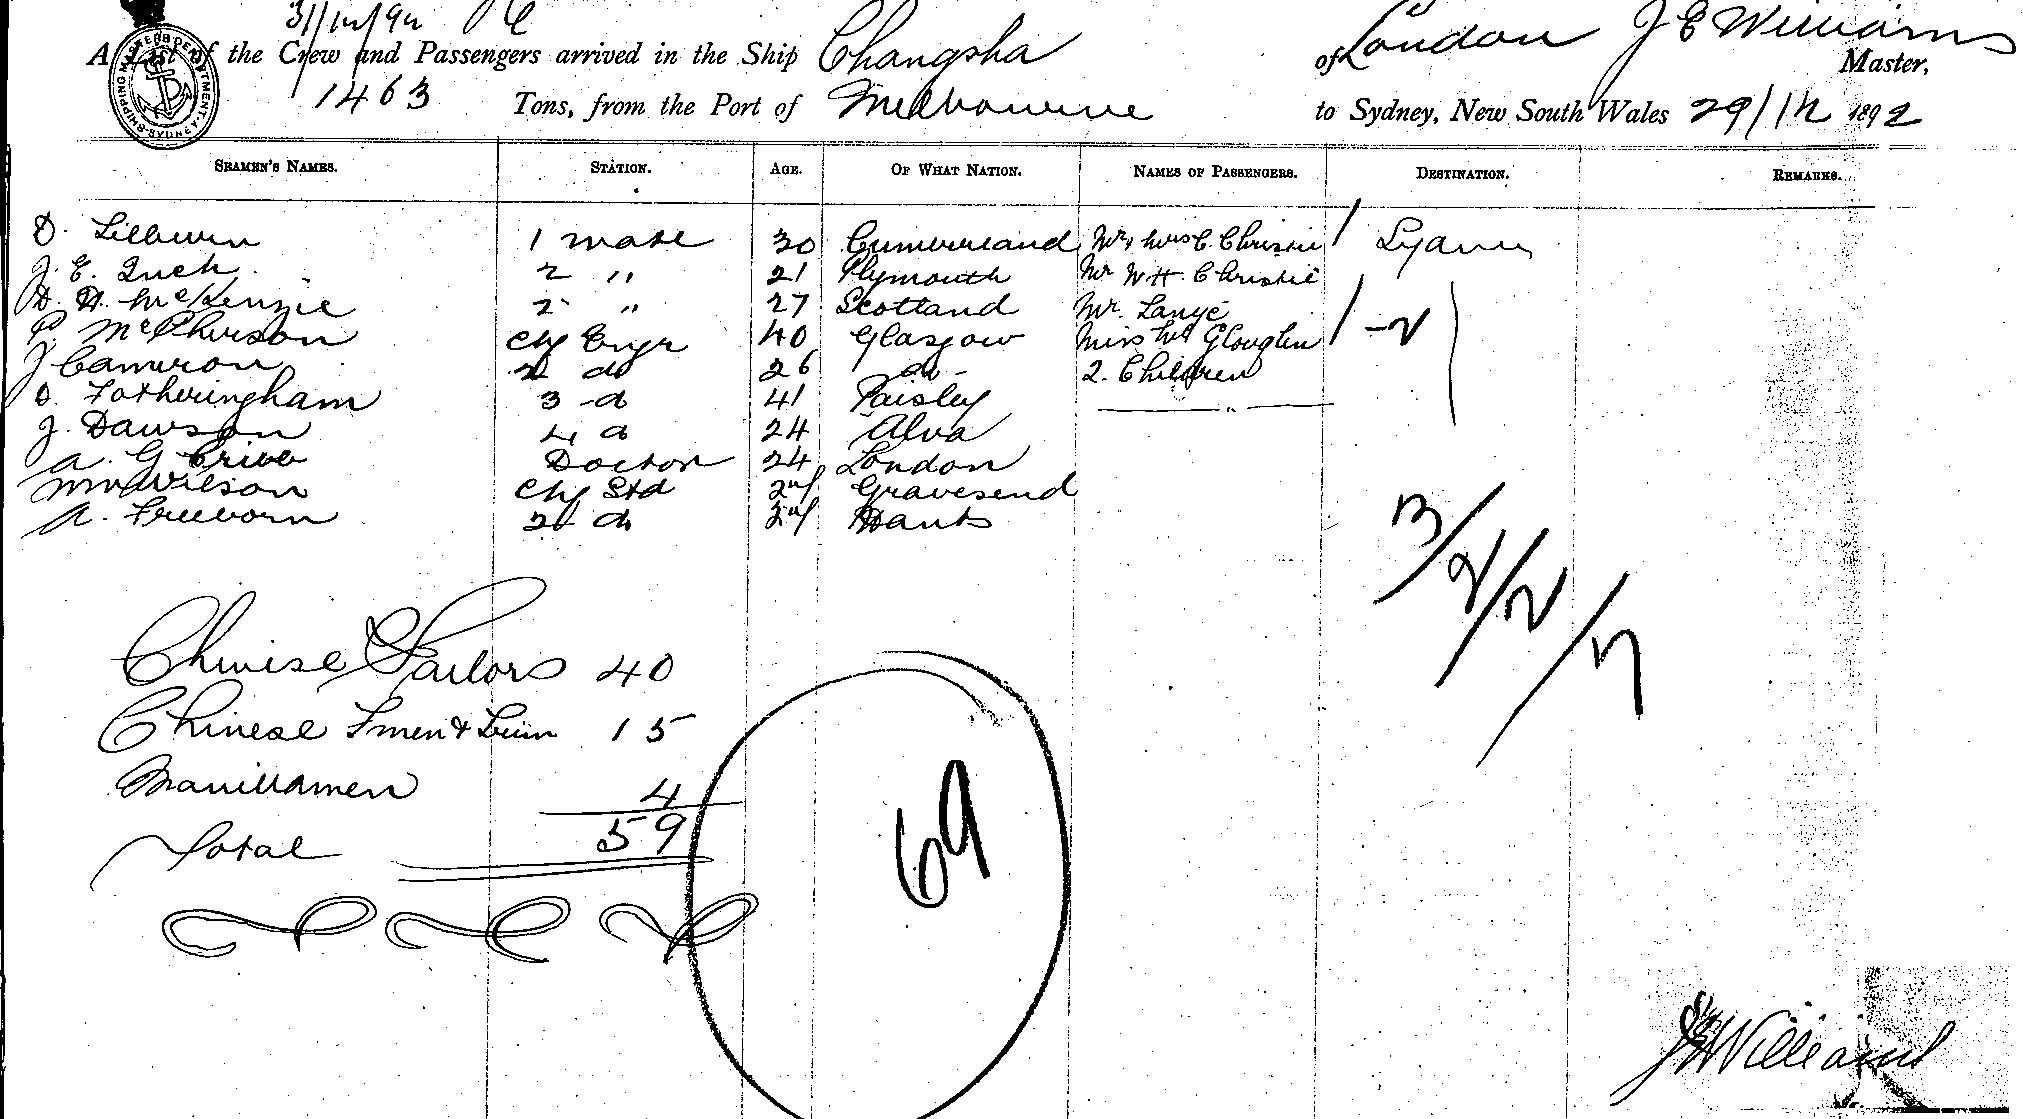 31/12/92
A List of the Crew and Passengers arrived in the Ship Changsha of London J E Williams Master,
1463 Tons, from the Port of Melbourne to Sydney, New South Wales 29/12 1892
SHIPPING MASTERS DEPARTMENT SYDNEY
SEAMEN'S NAMES. STATION. AGE. OF WHAT NATION. NAMES OF PASSENGERS. DESTINATION. REMARKS.
D. Lilburn 1 mate 30 Cumberland Mr & Mrs C. Christie 1
J. E. Tuch 2 " 21 Plymouth Mr W. H. Christie
D. H. McKenzie 2 " 27 Scotland Mr. Lange
P. McPherson Chf Engr 40 Glasgow Miss Mc Gloughlin 1 - 2
J Cameron 2 do 26 do - 2. Children
D. Fotheringham 3 -d 41 Paisley "
J. Dawson 4 d 24 Alva
A. G. Cribb Doctor 24 London
Wm Wilson Chf Std Gravesend
A. Freeborn 2 d Hants
Chinese Sailors 40
Chinese Fmen & 15
Manillamen 4
Total 59
69
3/2/2/7
J E Williams